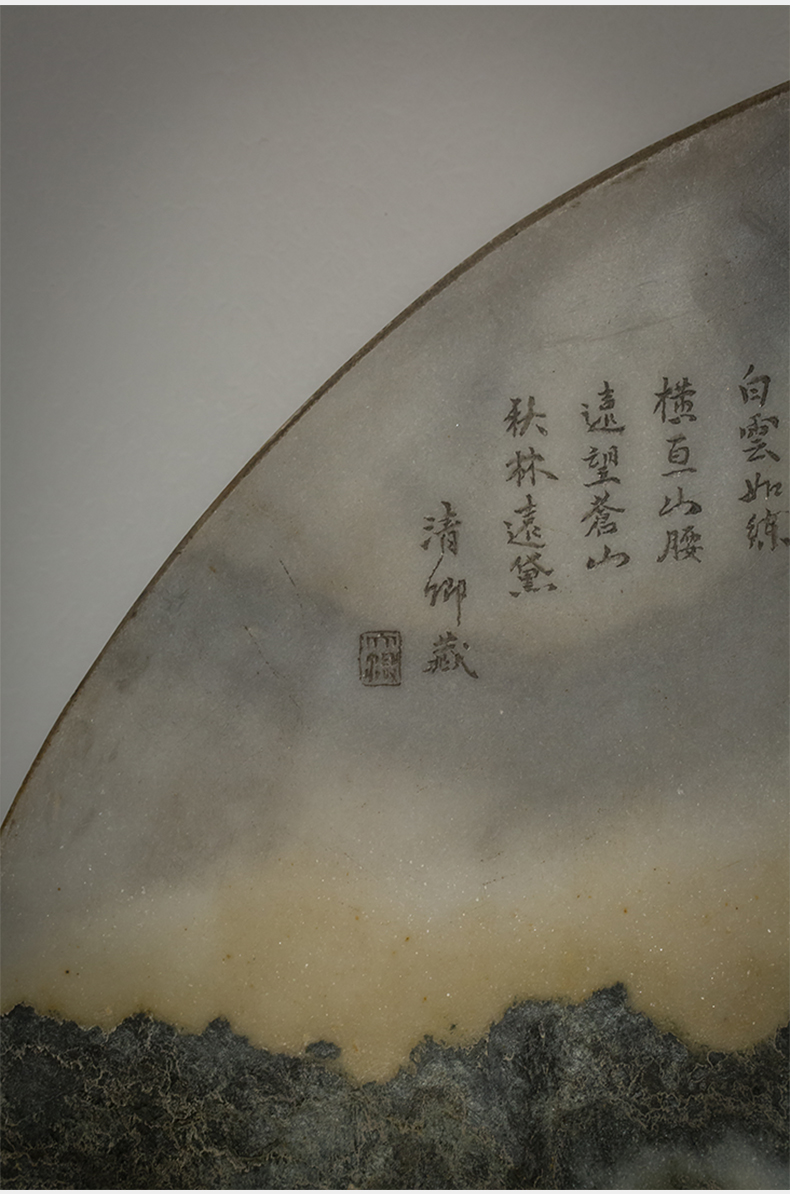 白雲如練
橫亘山腰
遠望蒼山
秋林遠黛
清卿藏